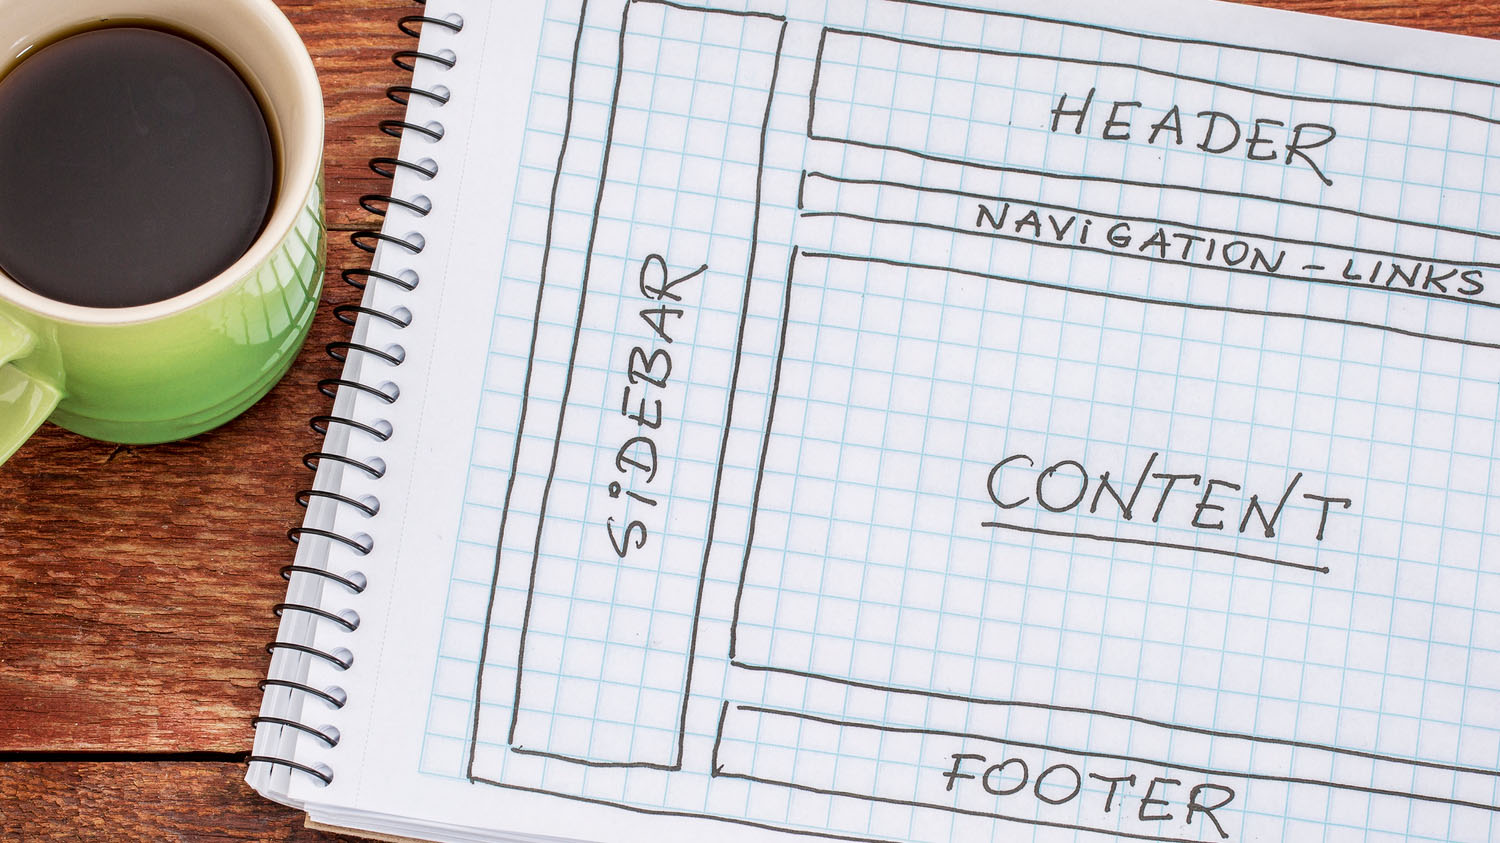 HEADER
NAViGATION - LINKS
SiDEBAR
CONTENT
FOOTER